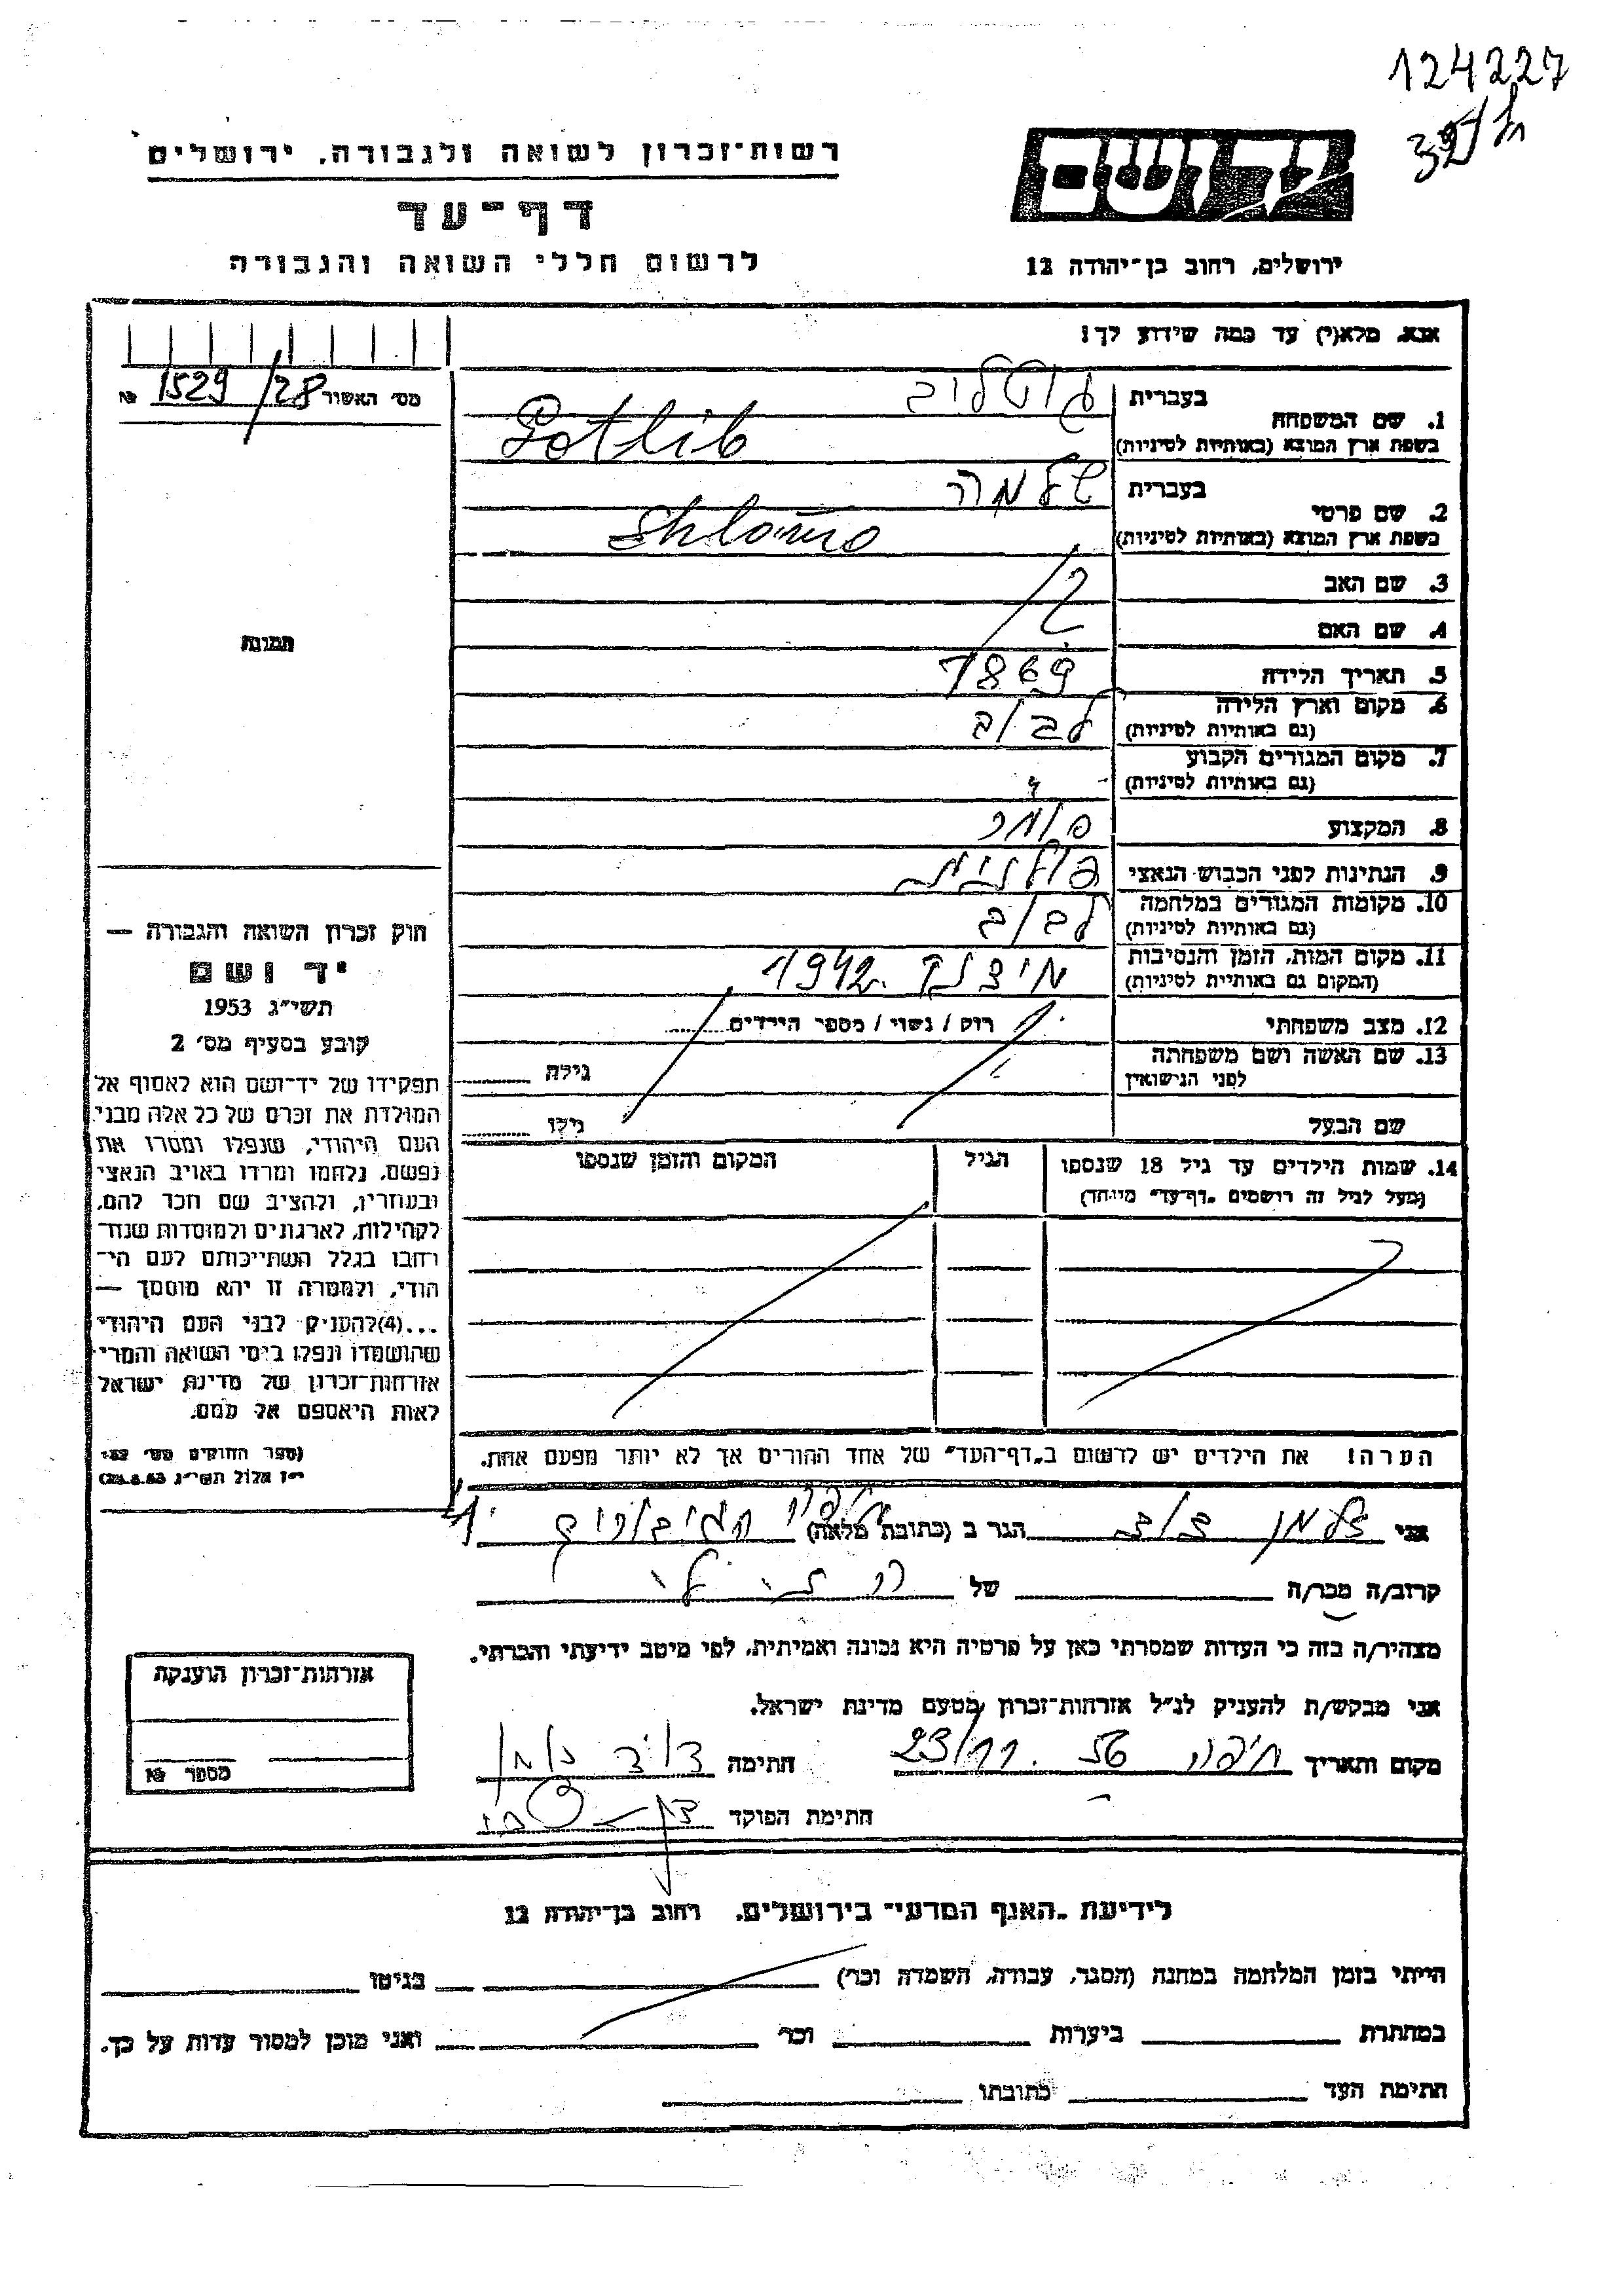 124227
רשות־זכרון לשואה ולגבורה, ירושלים
דף־עד
לרשום חללי השואה והגבורה
ידושם
ירושלים, רחוב בן־יהודה 12
אנא, מלא(י) עד כמה שידוע לך!
מס׳ האשור 1529/28 №
1. שם המשפחה
בעברית גוטליב
בשפת ארץ המוצא (באותיות לטיניות) Gotlib
2. שם פרטי
בעברית שלמה
בשפת ארץ המוצא (באותיות לטיניות) Shlomo
3. שם האב
4. שם האם
5. תאריך הלידה 1869
6. מקום וארץ הלידה לבוב
(גם באותיות לטיניות)
7. מקום המגורים הקבוע
(גם באותיות לטיניות)
8. המקצוע סוחר
9. הנתינות לפני הכבוש הנאצי פולנית
10. מקומות המגורים במלחמה לבוב
(גם באותיות לטיניות)
11. מקום המות, הזמן והנסיבות 1942
(המקום גם באותיות לטיניות)
12. מצב משפחתי רוק / נשוי / מספר הילדים
13. שם האשה ושם משפחתה גילה
לפני הנישואין
שם הבעל גילו
14. שמות הילדים עד גיל 18 שנספו הגיל המקום והזמן שנספו
(מעל לגיל זה רושמים „דף־עד״ מיוחד)
הערה! את הילדים יש לרשום ב„דף־העד״ של אחד ההורים אך לא יותר מפעם אחת.
תמונה
חוק זכרון השואה והגבורה —
יד ושם
תשי״ג 1953
קובע בסעיף מס׳ 2
תפקידו של יד־ושם הוא לאסוף אל
המולדת את זכרם של כל אלה מבני
העם היהודי, שנפלו ומסרו את
נפשם, נלחמו ומרדו באויב הנאצי
ובעוזריו, ולהציב שם וזכר להם,
לקהילות, לארגונים ולמוסדות שנח־
רחבו בגלל השתייכותם לעם הי־
הודי, ולמטרה זו יהא מוסמך —
...(4)להעניק לבני העם היהודי
שהושמדו ונפלו בימי השואה והמרי
אזרחות־זכרון של מדינת ישראל
לאות היאספם אל עמם.
(ספר החוקים מס׳ 132
י״ז אלול תשי״ג 28.8.53)
אני הגר ב (כתובת מלאה) חיפה
קרוב/ה מכר/ה של
מצהיר/ה בזה כי העדות שמסרתי כאן על פרטיה היא נכונה ואמיתית, לפי מיטב ידיעתי והכרתי.
אני מבקש/ת להעניק לנ״ל אזרחות־זכרון מטעם מדינת ישראל.
מקום ותאריך חיפה 23/11. 56 חתימה
חתימת הפוקד
אזרחות־זכרון הוענקה
מספר №
לידיעת „האגף המדעי״ בירושלים, רחוב בן־יהודה 12
הייתי בזמן המלחמה במחנה (הסגר, עבודה, השמדה וכו׳) בגיטו
במחתרת ביערות וכו׳ ואני מוכן למסור עדות על כך.
חתימת העד כתובתו